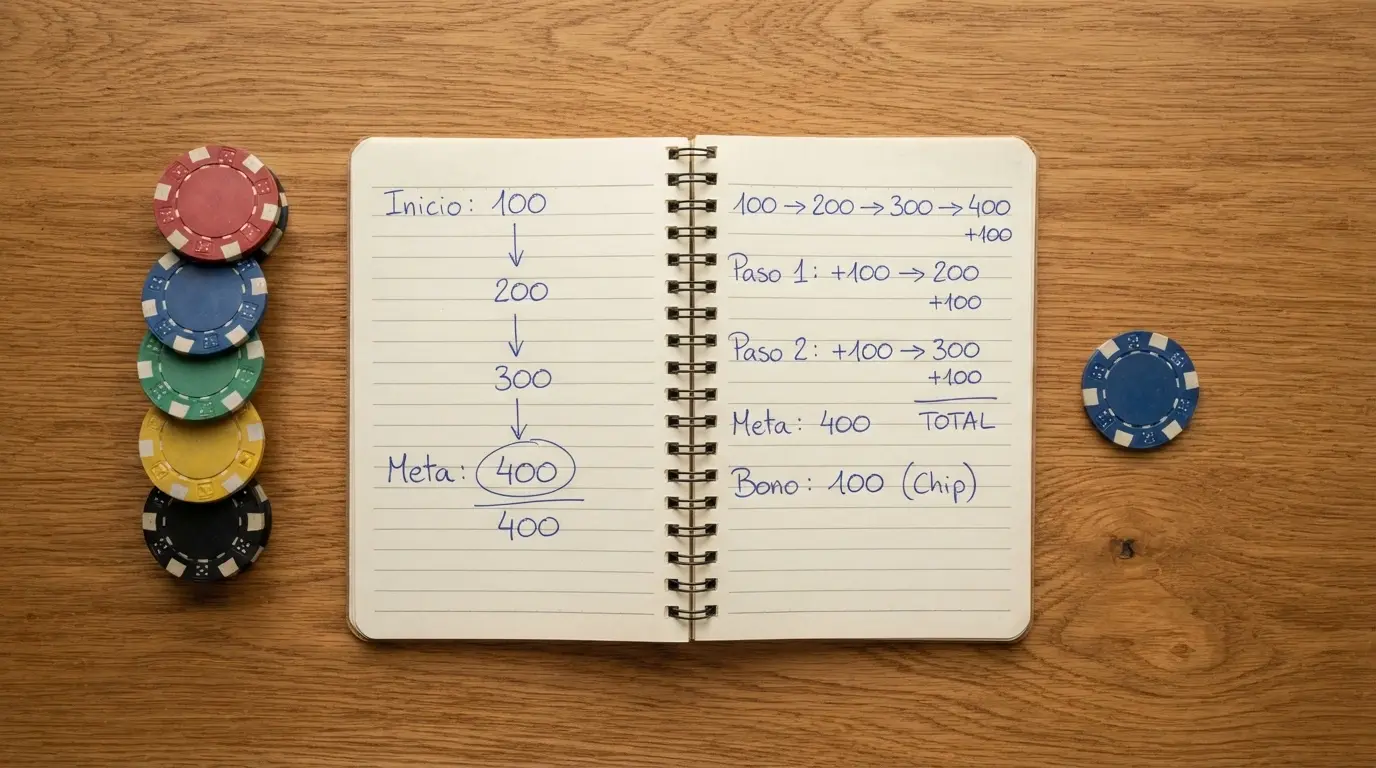 Inicio: 100
↓
200
↓
300
↓
Meta: 400
400
100 → 200 → 300 → 400
+100
Paso 1: +100 → 200
+100
Paso 2: +100 → 300
+100
Meta: 400 TOTAL
Bono: 100 (Chip)